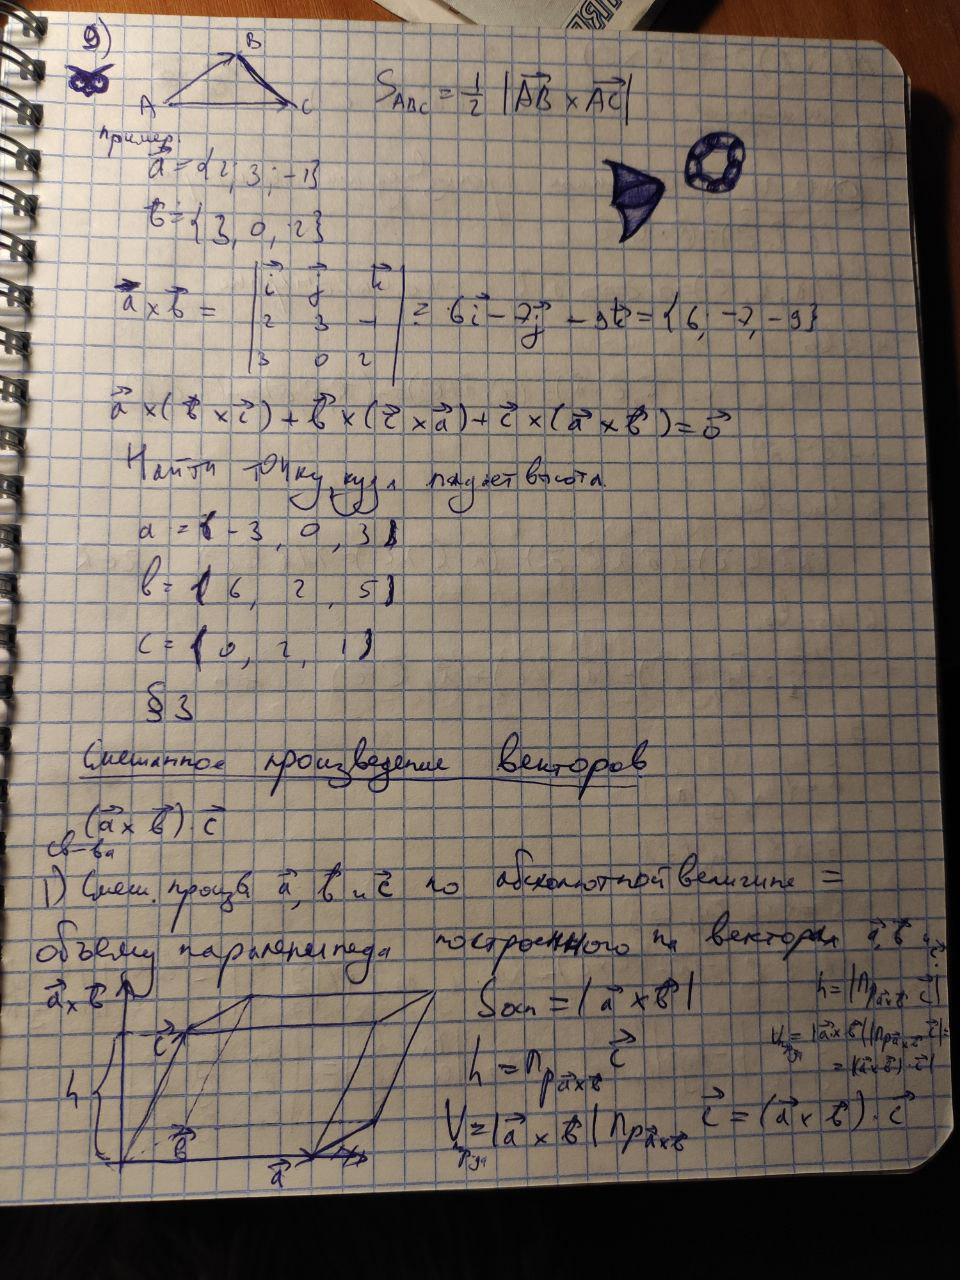 9)
B
A C
S_ABC = 1/2 |AB⃗ × AC⃗|
Пример:
a⃗ = {2; 3; -1}
b⃗ = {3, 0, 2}
a⃗ × b⃗ = | i⃗ j⃗ k⃗ | = 6i⃗ - 7j⃗ - 9k⃗ = {6; -7, -9}
2 3 -1
3 0 2
a⃗ × (b⃗ × c⃗) + b⃗ × (c⃗ × a⃗) + c⃗ × (a⃗ × b⃗) = 0⃗
Найти точку, куда падает высота.
a = (-3, 0, 3)
b = (6, 2, 5)
c = (0, 2, 1)
§ 3
Смешанное произведение векторов
(a⃗ × b⃗) · c⃗
св-ва
1) Смеш. произв. a⃗, b⃗ и c⃗ по абсолютной величине =
объему параллепипеда построенного на векторах a⃗, b⃗ и c⃗
a⃗ × b⃗
c⃗
h
b⃗
a⃗
S осн = |a⃗ × b⃗|
h = Пр a⃗×b⃗ c⃗
V = |a⃗ × b⃗| Пр a⃗×b⃗ c⃗ = (a⃗ × b⃗) · c⃗
h = |Пр a⃗×b⃗ c⃗|
V = |a⃗ × b⃗| |Пр a⃗×b⃗ c⃗| =
= |(a⃗ × b⃗) · c⃗|